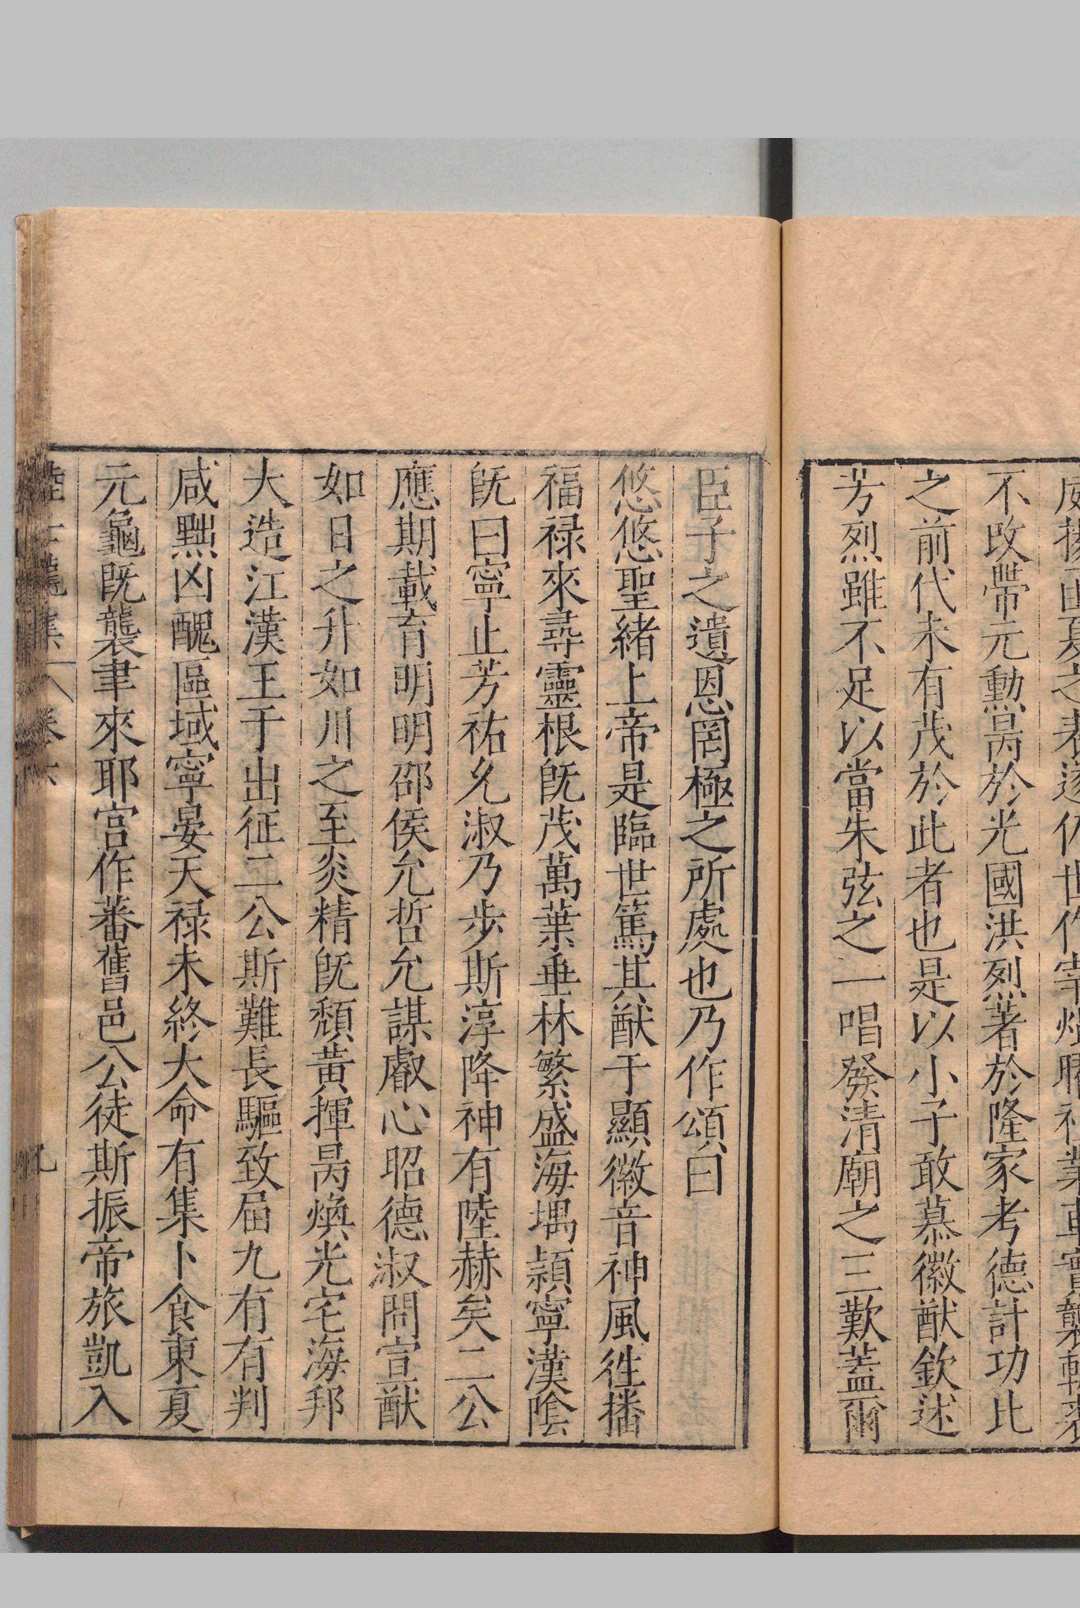 不改帶元勳昺於光國洪烈著於隆家考德計功比
之前代未有茂於此者也是以小子敢慕徽猷欽述
芳烈雖不足以當朱弦之一唱發清廟之三歎蓋爾
臣子之遺恩罔極之所處也乃作頌曰
悠悠聖緒上帝是臨世篤其猷于顯徽音神風徃播
福禄來尋靈根旣茂萬葉垂林繁盛海堣頴寧漢陰
旣曰寧止芳祐允淑乃步斯淳降神有陸赫矣二公
應期載育明明邵侯允哲允謀叡心昭德淑問宣猷
如日之升如川之至炎精旣頽黄揮昺煥光宅海邦
大造江漢王于出征二公斯難長驅致届九有有判
咸黜凶醜區域寧晏天禄未終大命有集卜食東夏
元龜旣襲聿來耶宫作蕃舊邑公徒斯振帝旅凱入
陸士龍集 卷六 九